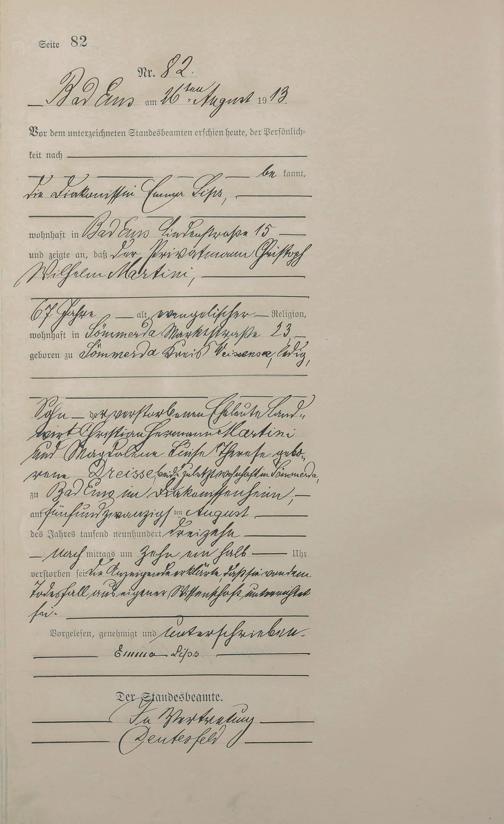 Seite 82
Nr. 82.
Bad Ems am 26ten August 1913.
Vor dem unterzeichneten Standesbeamten erschien heute, der Persönlich-
keit nach
be kannt,
die Diakonissin Emma Lips,
wohnhaft in Bad Ems Lindenstraße 15
und zeigte an, daß der Privatmann Christoph
Wilhelm Martini,
67 Jahre alt, evangelischer Religion,
wohnhaft in Sömmerda Marktstraße 23
geboren zu Sömmerda Kreis Weissensee, ledig,
Sohn der verstorbenen Eheleute Land-
wirt Christian Hermann Martini
und Magdalene Luise Therese gebo-
rene Dreisse, beide zuletzt wohnhaft in Sömmerda,
zu Bad Ems im Diakonissenheim,
am fünfundzwanzigsten August
des Jahres tausend neunhundert dreizehn
nach mittags um zehn ein halb Uhr
verstorben sei. Die Anzeigende erklärte, daß sie von dem
Todesfall aus eigener Wissenschaft unterrichtet
sei.
Vorgelesen, genehmigt und unterschrieben.
Emma Lips
Der Standesbeamte.
In Vertretung